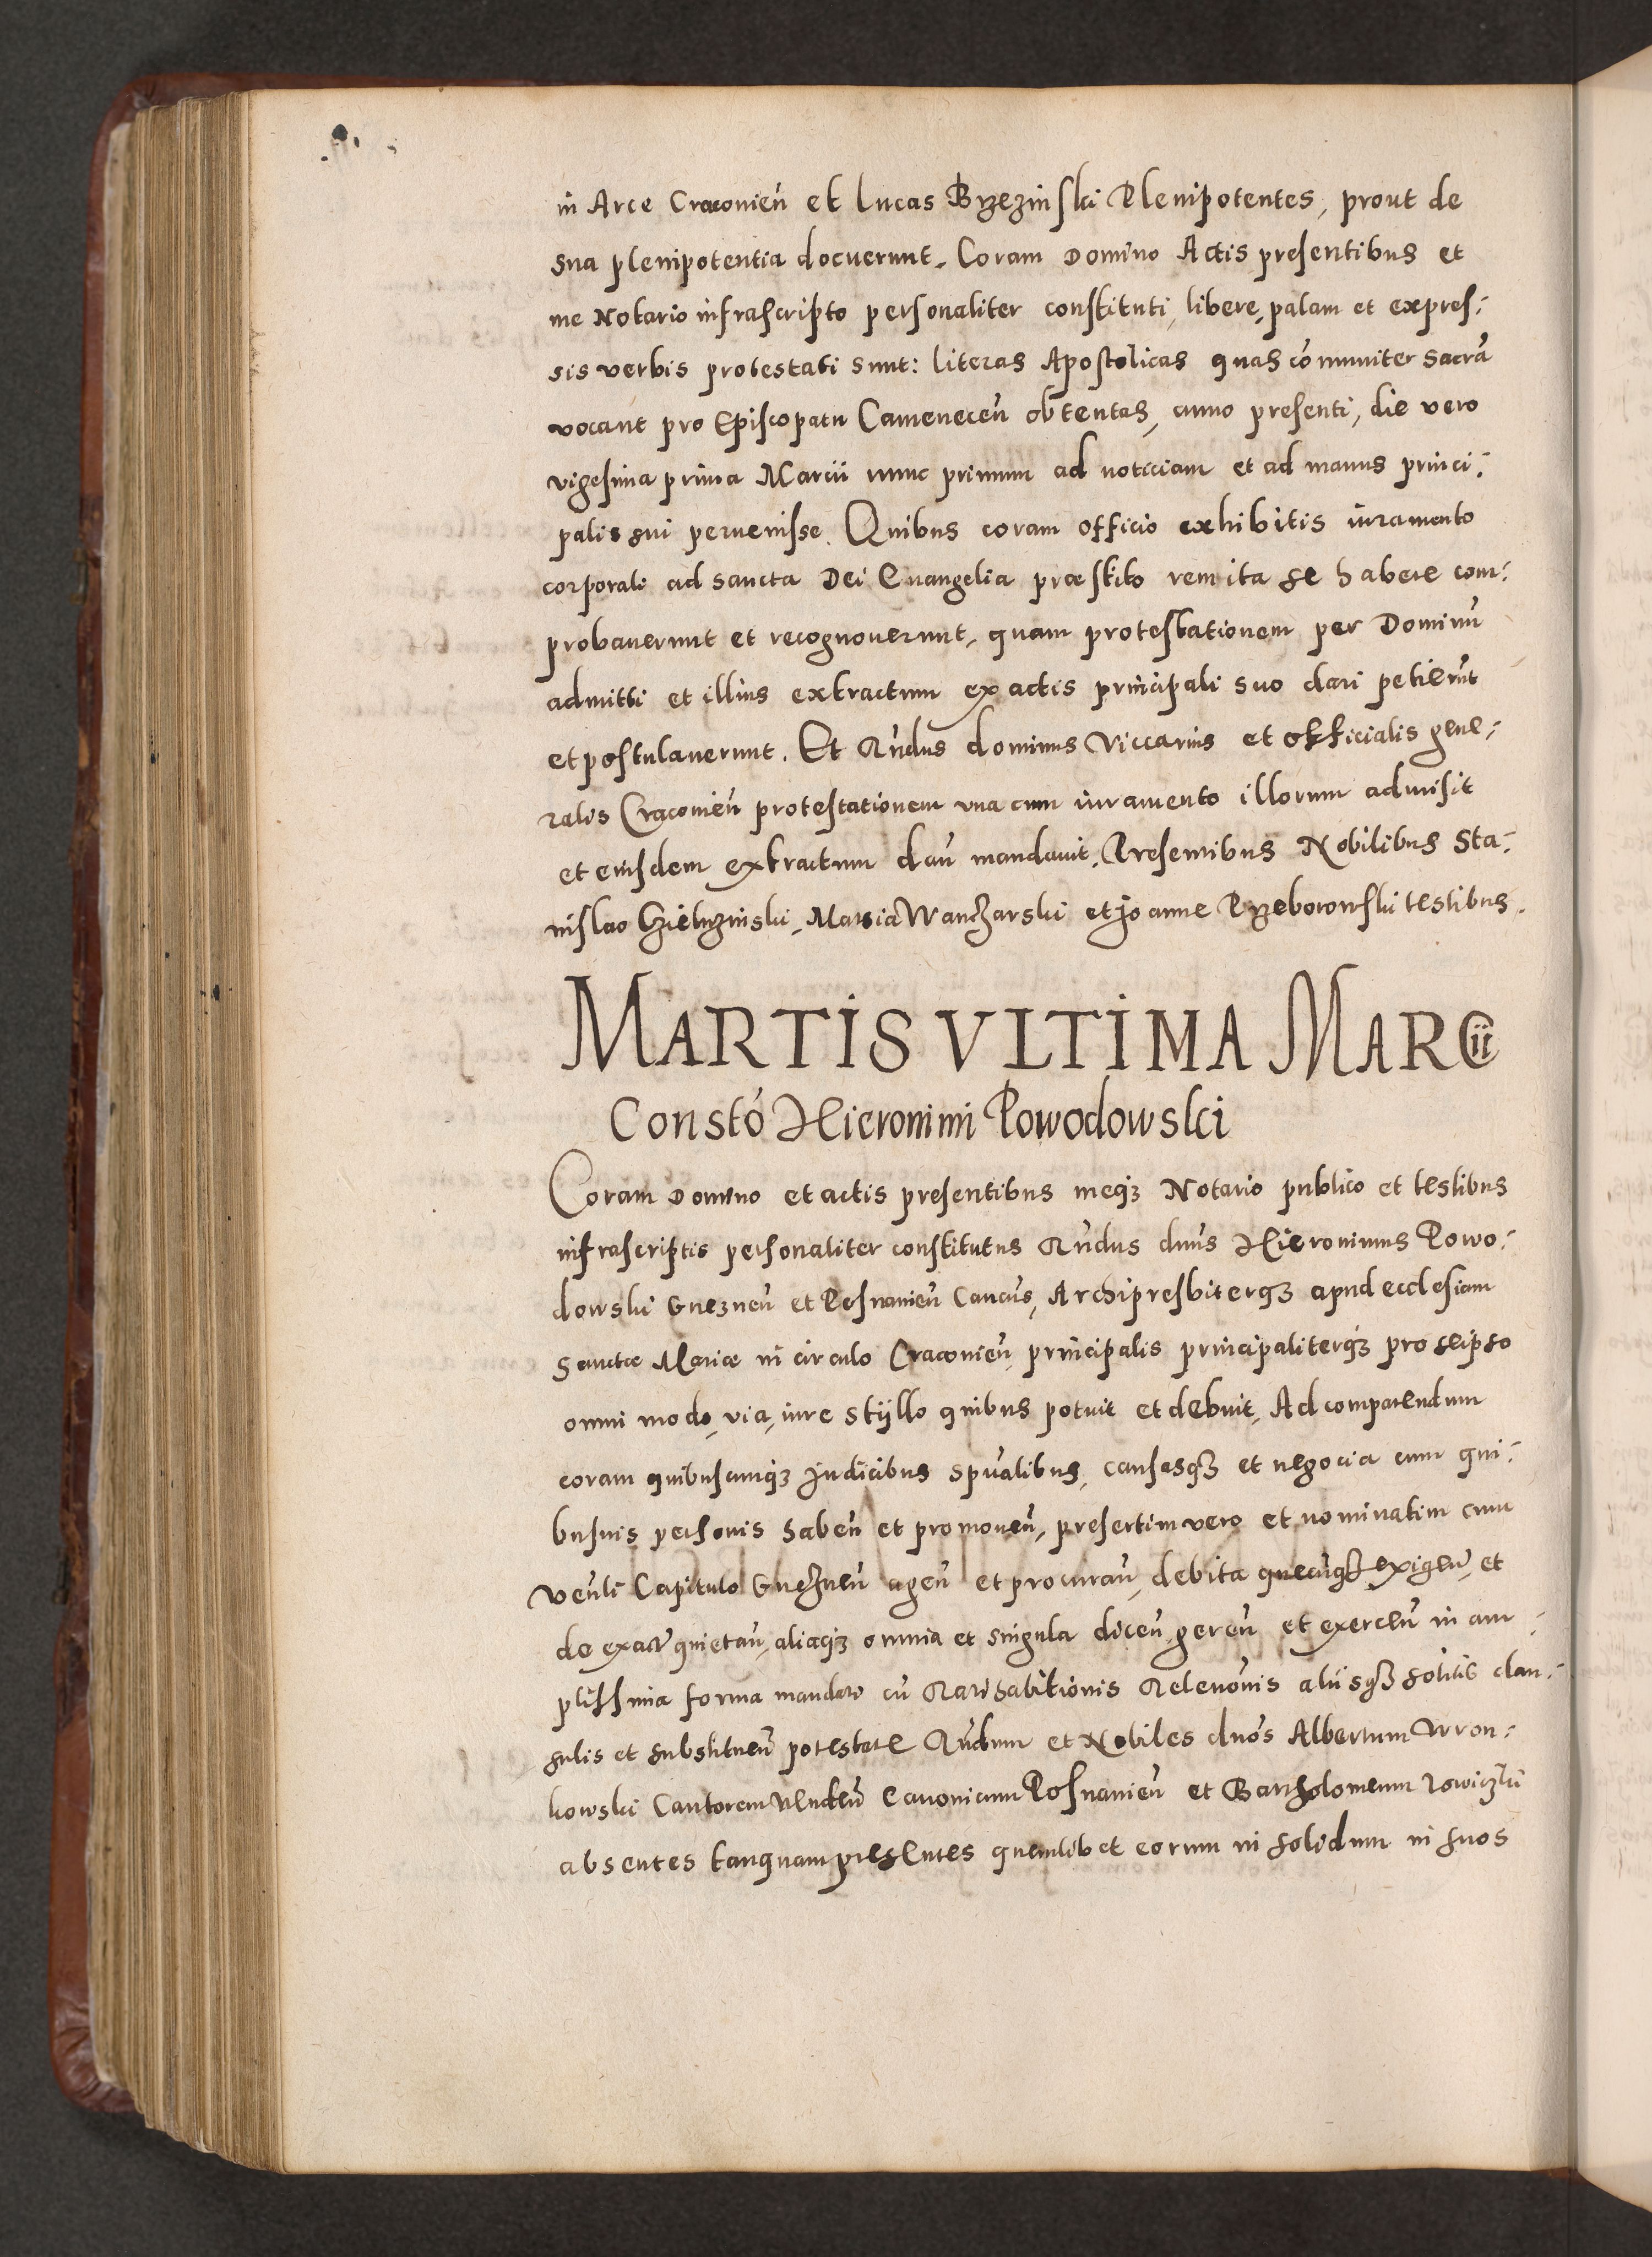 in Arce Cracovieñ et Lucas Brzezinski Plenipotentes, prout de
sua plenipotentia docuerunt. Coram Domino Actis presentibus et
me Notario infrascripto personaliter constituti, libere, palam et expres-
sis verbis protestati sunt: literas Apostolicas quas cōmuniter sacrā
vocant pro Episcopatu Cameneceñ obtentas, anno presenti, die vero
vigesima prima Marcii nunc primum ad noticiam et ad manus princi-
palis sui pervenisse. Quibus coram officio exhibitis iuramento
corporali ad sancta Dei Euangelia præstito rem ita se habere com-
probaverunt et recognoverunt, quam protestationem per Dominū
admitti et illius extractum ex actis principali suo dari petierūt
et postulaverunt. Et Rñdus dominus Viccarius et officialis gene-
ralis Cracovieñ protestationem una cum iuramento illorum admisit
et eiusdem extractum dari mandavit. Presentibus Nobilibus Sta-
nislao testibus.
MARTIS VLTIMA MARCii
Constō Hieronimi Powodowski
Coram Domino et actis presentibus meqȝ Notario publico et testibus
infrascriptis personaliter constitutus Rñdus dnus Hieronimus Powo-
dowski Gnezneñ et Posnanieñ Cancus, Archipresbiterqȝ apud ecclesiam
Sanctæ Mariæ in circulo Cracovieñ, principalis principaliterqȝ pro seipso
omni modo, via, iure styllo quibus potuit et debuit, Ad comparendum
coram quibuscunqȝ Judicibus spualibus, causasqȝ et negocia cum qui-
busvis personis habeñ et promoveñ, presertim vero et nominatim cum
Venli Capitulo Gnezneñ ageñ et procurañ, debita quecūqȝ exigeñ, et
de exact quietañ, aliaqȝ omnia et singula diceñ gereñ et exerceñ in am-
plissima forma mandati cū Ratihabitionis Relevōnis aliisqȝ solitis clau-
sulis et substitueñ potestate Rñdum et Nobiles dnos Albertum Wron-
kowski Cantorem Canonicum Posnanieñ et Bartholomeum
absentes tanquam presentes quemlibet eorum in solidum in suos